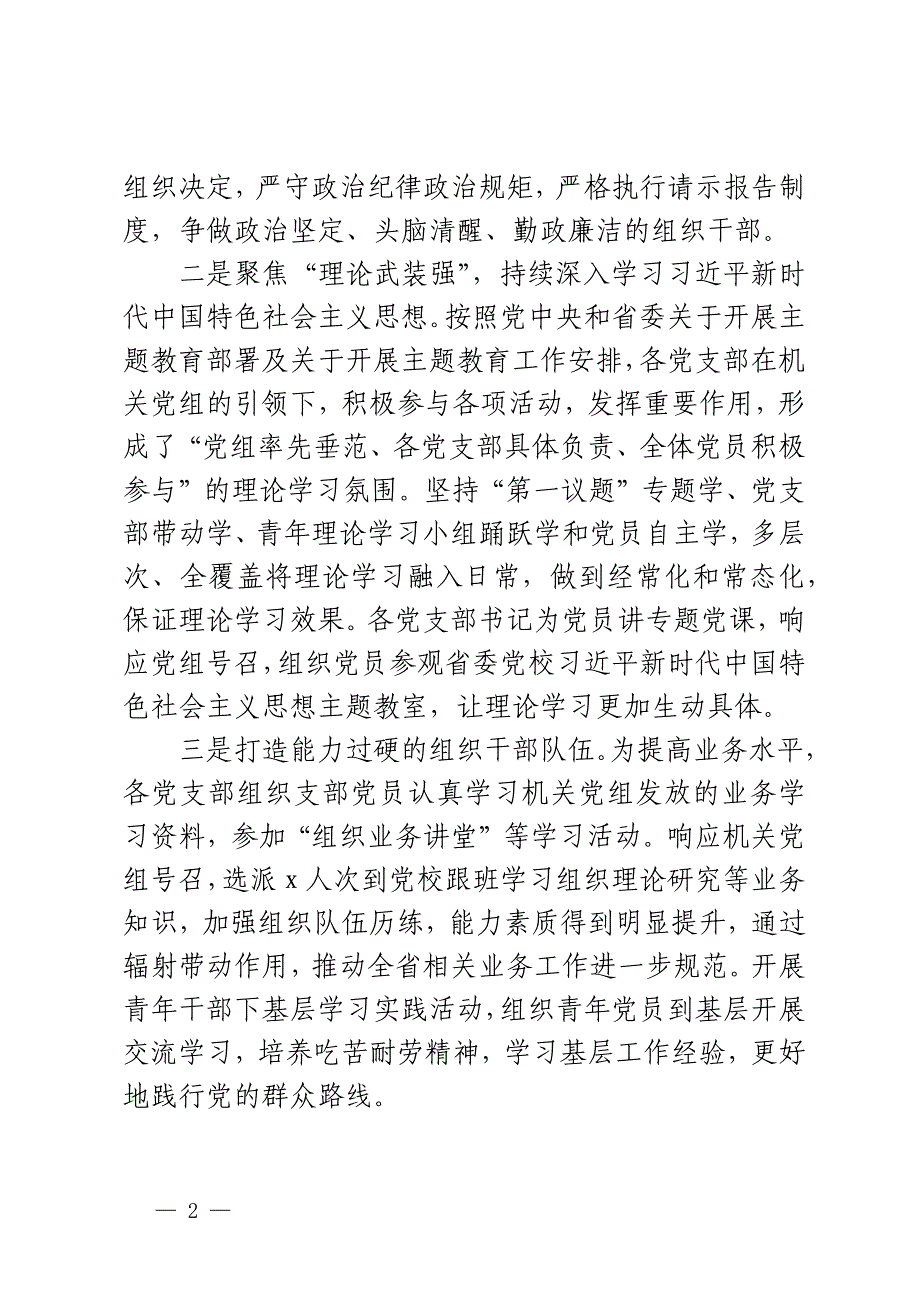 组织决定，严守政治纪律政治规矩，严格执行请示报告制
度，争做政治坚定、头脑清醒、勤政廉洁的组织干部。
二是聚焦“理论武装强”，持续深入学习习近平新时
代中国特色社会主义思想。按照党中央和省委关于开展主
题教育部署及关于开展主题教育工作安排，各党支部在机
关党组的引领下，积极参与各项活动，发挥重要作用，形
成了“党组率先垂范、各党支部具体负责、全体党员积极
参与”的理论学习氛围。坚持“第一议题”专题学、党支
部带动学、青年理论学习小组踊跃学和党员自主学，多层
次、全覆盖将理论学习融入日常，做到经常化和常态化，
保证理论学习效果。各党支部书记为党员讲专题党课，响
应党组号召，组织党员参观省委党校习近平新时代中国特
色社会主义思想主题教室，让理论学习更加生动具体。
三是打造能力过硬的组织干部队伍。为提高业务水平，
各党支部组织支部党员认真学习机关党组发放的业务学
习资料，参加“组织业务讲堂”等学习活动。响应机关党
组号召，选派 x 人次到党校跟班学习组织理论研究等业务
知识，加强组织队伍历练，能力素质得到明显提升，通过
辐射带动作用，推动全省相关业务工作进一步规范。开展
青年干部下基层学习实践活动，组织青年党员到基层开展
交流学习，培养吃苦耐劳精神，学习基层工作经验，更好
地践行党的群众路线。
— 2 —